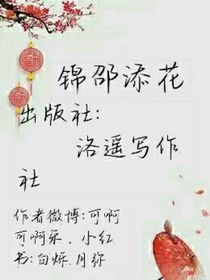 锦邵添花
出版社:
洛遥写作
社
作者微博:可啊
可啊乐.小红
书:白烁.月弥